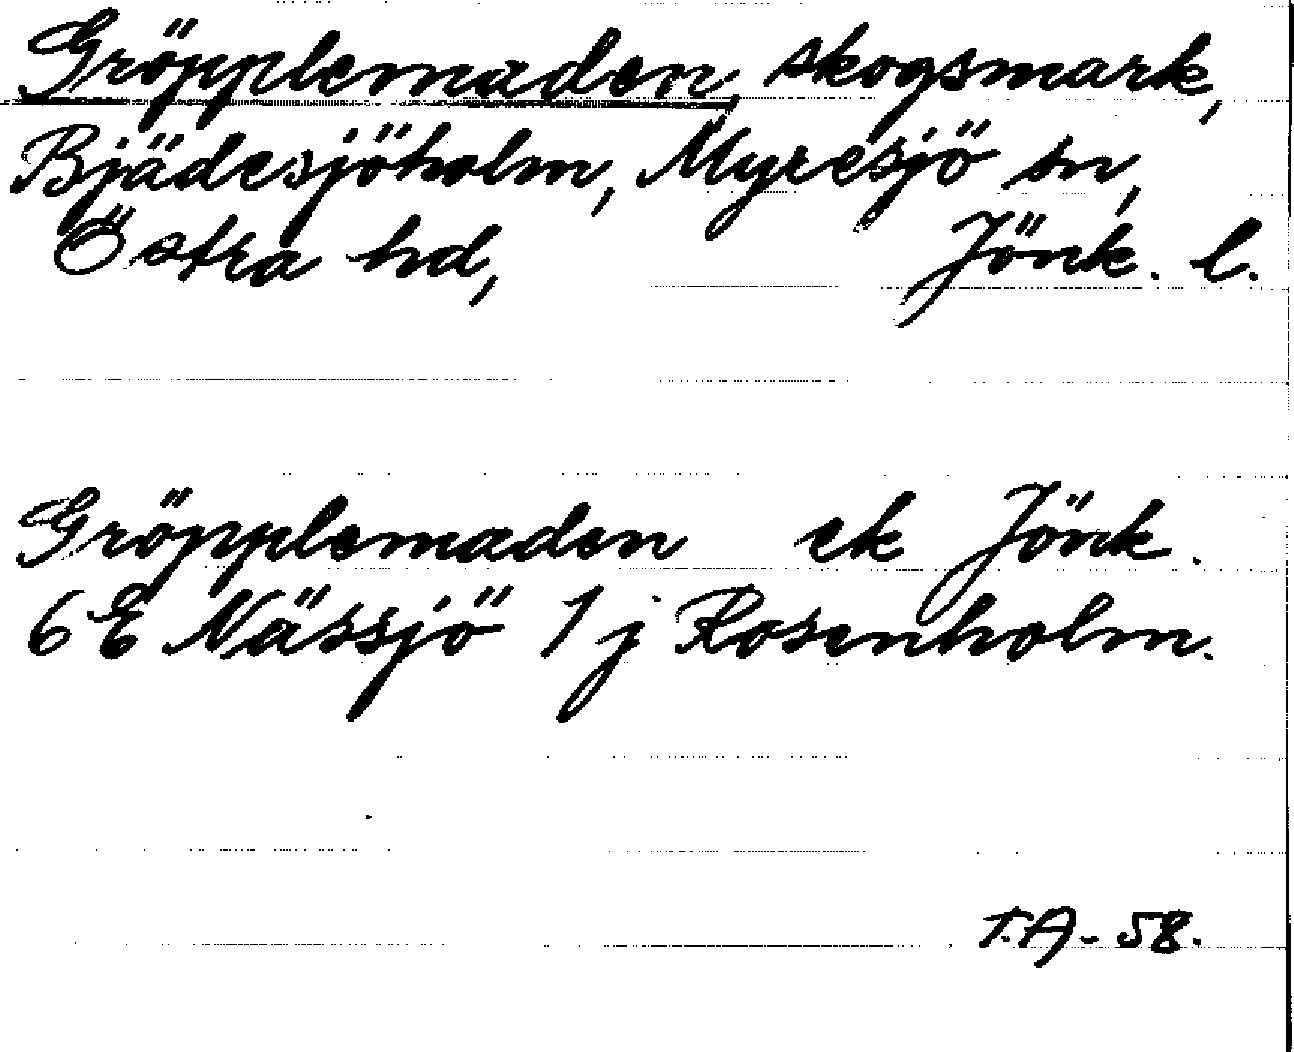 Gröpplemaden, skogsmark,
Bjädesjöholm, Myresjö sn,
Östra hd, Jönk. l.
Gröpplemaden ek Jönk.
6E Nässjö 1 j Rosenholm.
T.A - 58.